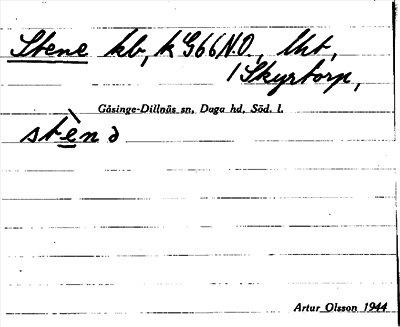 Stene kb, k G66N.O., Uht,
/ Skyrtorp,
Gåsinge-Dillnäs sn, Daga hd, Söd. l.
stè̱n ə
Artur Olsson 1944